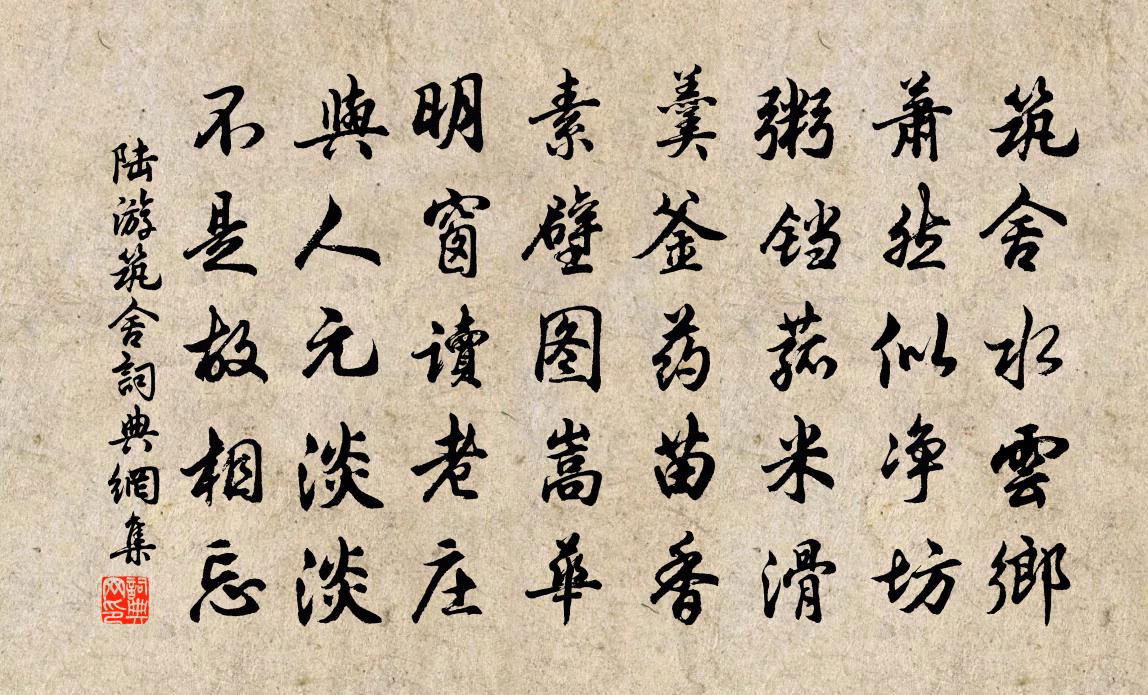 筑舍水雲鄉
蕭然似净坊
粥铛菰米滑
羹釜药苗香
素壁图嵩華
明窗讀老庄
與人元淡淡
不是故相忘
陆游筑舍詞典網集
詞典網印